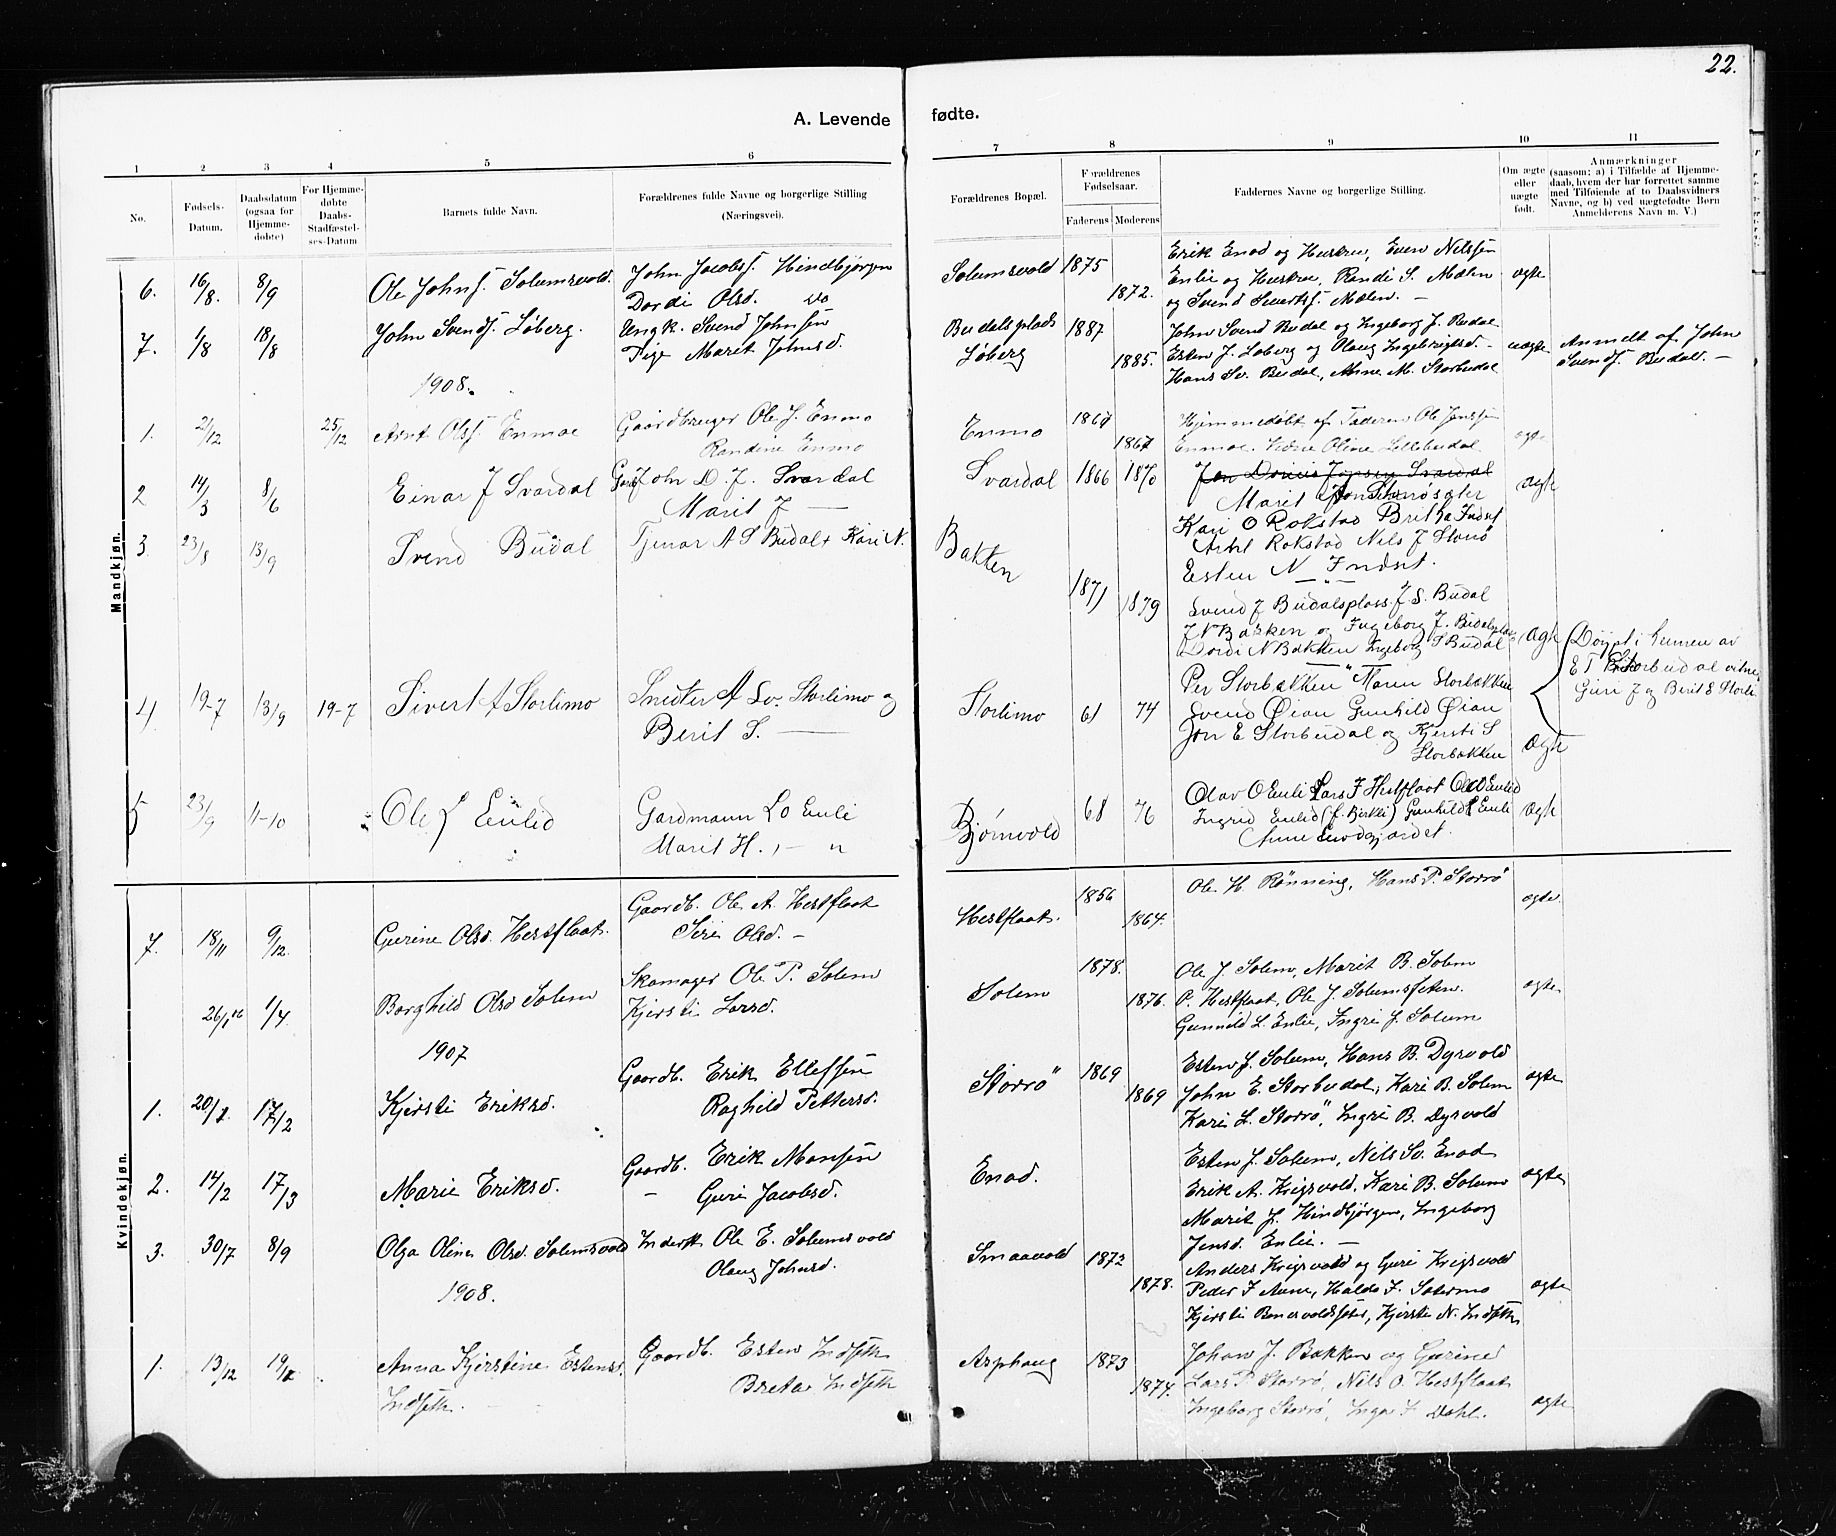 22.
A. Levende fødte.
1 2 3 4 5 6 7 8 9 10 11
No.
Fødsels-Datum.
Daabsdatum (ogsaa for Hjemmedøbte)
For Hjemmedøbte Daabs-Stadfæstelses-Datum
Barnets fulde Navn.
Forældrenes fulde Navne og borgerlige Stilling (Næringsvei).
Forældrenes Bopæl.
Forældrenes Fødselsaar.
Faderens Moderens
Faddernes Navne og borgerlige Stilling.
Om ægte eller uægte født.
Anmærkninger (saasom: a) i Tilfælde af Hjemmedaab, hvem der har forrettet samme med Tilføiende af to Daabsvidners Navne, og b) ved uægtefødte Børn Anmelderens Navn m. V.)
Mandkjøn.
6. 16/8. 8/9 Ole Johns. Solumsvold. John Jacobs. Hindbjørgen Solumsvold 1875 Erik Enod og Hustru, Even Nilssen
Dordi Olsd. do 1872. Enlie og Hustru, Randi S. Mælen ægte
og Svend Sivertsf. Mælen. —
7. 1/8 18/8 John Svendf. Løberg. Ungk. Svend Johnsen Budalsplads 1887 John Svend Budal og Ingeborg J. Budal
Pige Marit Johnsd. Løberg 1885. Esten J. Løberg og Olaug Ingebrigtsd. — uægte Anmelt af John
Hans Sv. Budal, Anne M. Storbudal Svendf. Budal. —
1908.
1. 2/12 25/12 Arnt Olsf. Enmoe Gaardbruger Ole J. Enmo Enmo 1867 Hjemmedøbt af Faderen Ole Jonssen
Randine Enmo 1867 Enmoe. Vidne Oline Lillebudal ægte
2 14/3 8/6 Einar J Svardal Gbr John D. J. Svardal Svardal 1866 1870 Jon Svardal ægte
Marit J — Marit
3 23/8 13/9 Svend Budal Tjener A S Budal + Kari N. Bakken Kari O Rokstad Brit Indset
Rokstad Nils J Storrø
Esten N Indset.
1871 1879 Svend J Budalsplass J. S. Budal
J N Bakken og Ingeborg J. Budalsplas Ægte
Dordi N Bakken Ingeborg S Budal
4 19-7 13/9 19-7 Sivert A Storlimo Snedker A Sv. Storlimo og Storlimo 61 74 Per Storbakken Maren Storbakken
Berit S. — Svend Øian Gunhild Øian
Jon E Storbudal og Kjersti S Storbakken Ægte
Døypt i heimen av
E J Storbudal vitne
Guri J og Berit S Storli
5 23/9 11-10 Ole L Enlid Gardmann L O Enli Bjørnvold 68 76 Olav O Enli Lars J Hestflaat Ole O Enlid
Marit H. — " Ingrid Enlid (f. Birkli) Gunhild L Enli Ægte
Anne Enodgjardet.
Kvindekjøn.
7. 18/11 9/12. Gurine Olsd. Hestflaat. Gaardb. Ole A. Hestflaat Hestflaat. 1856 Ole H. Rønning, Hans P. Storrø ægte
Siri Olsd. — 1864.
26/1 06 1/4. Borghild Olsd Solem Skomager Ole P. Solem Solem 1878. Ole J. Solem, Marit B. Solem
Kjersti Larsd. 1876. P. Hestflaat, Ole J. Solumsfeten. ægte
Gunnild L. Enlie, Ingri J. Solum
1907
1. 20/1 17/2 Kjersti Eriksd. Gaardb. Erik Ellefsen Storrø 1869 Esten J. Solum, Hans B. Dyrvold
Raghild Pettersd. 1869 John E. Storbudal, Kari B. Solem ægte
Kari L. Storrø, Ingri B. Dyrvold
2. 14/2 17/3 Marie Eriksd. Gaardb. Erik Monsen Enod. Esten J. Solum, Nils Sv. Enod
— Guri Jacobsd. Erik A. Krigsvold, Kari B. Solum ægte
Marit J. Hindbjørgen, Ingeborg
Jensd. Enlie. —
3. 30/7 8/9 Olga Oline Olsd. Solemsvold Inderst Ole E. Solumsvold Smaavold 1872 Anders Krigsvold og Guri Krigsvold
Olaug Johnsd. 1878. Peder J Aune, Haldo J. Solermo ægte
Kjersti, Kjersti N. Indseth
1908.
1. 13/12 19/ Anna Kjerstine Estensd. Gaardb. Esten Indseth Asphaug 1873 Johan J. Bakken og Gurine
Indseth. Breta Indseth 1874. Lars P. Storrø, Nils O. Hestflaat
Ingeborg Storrø, Inga F. Dahl. ægte